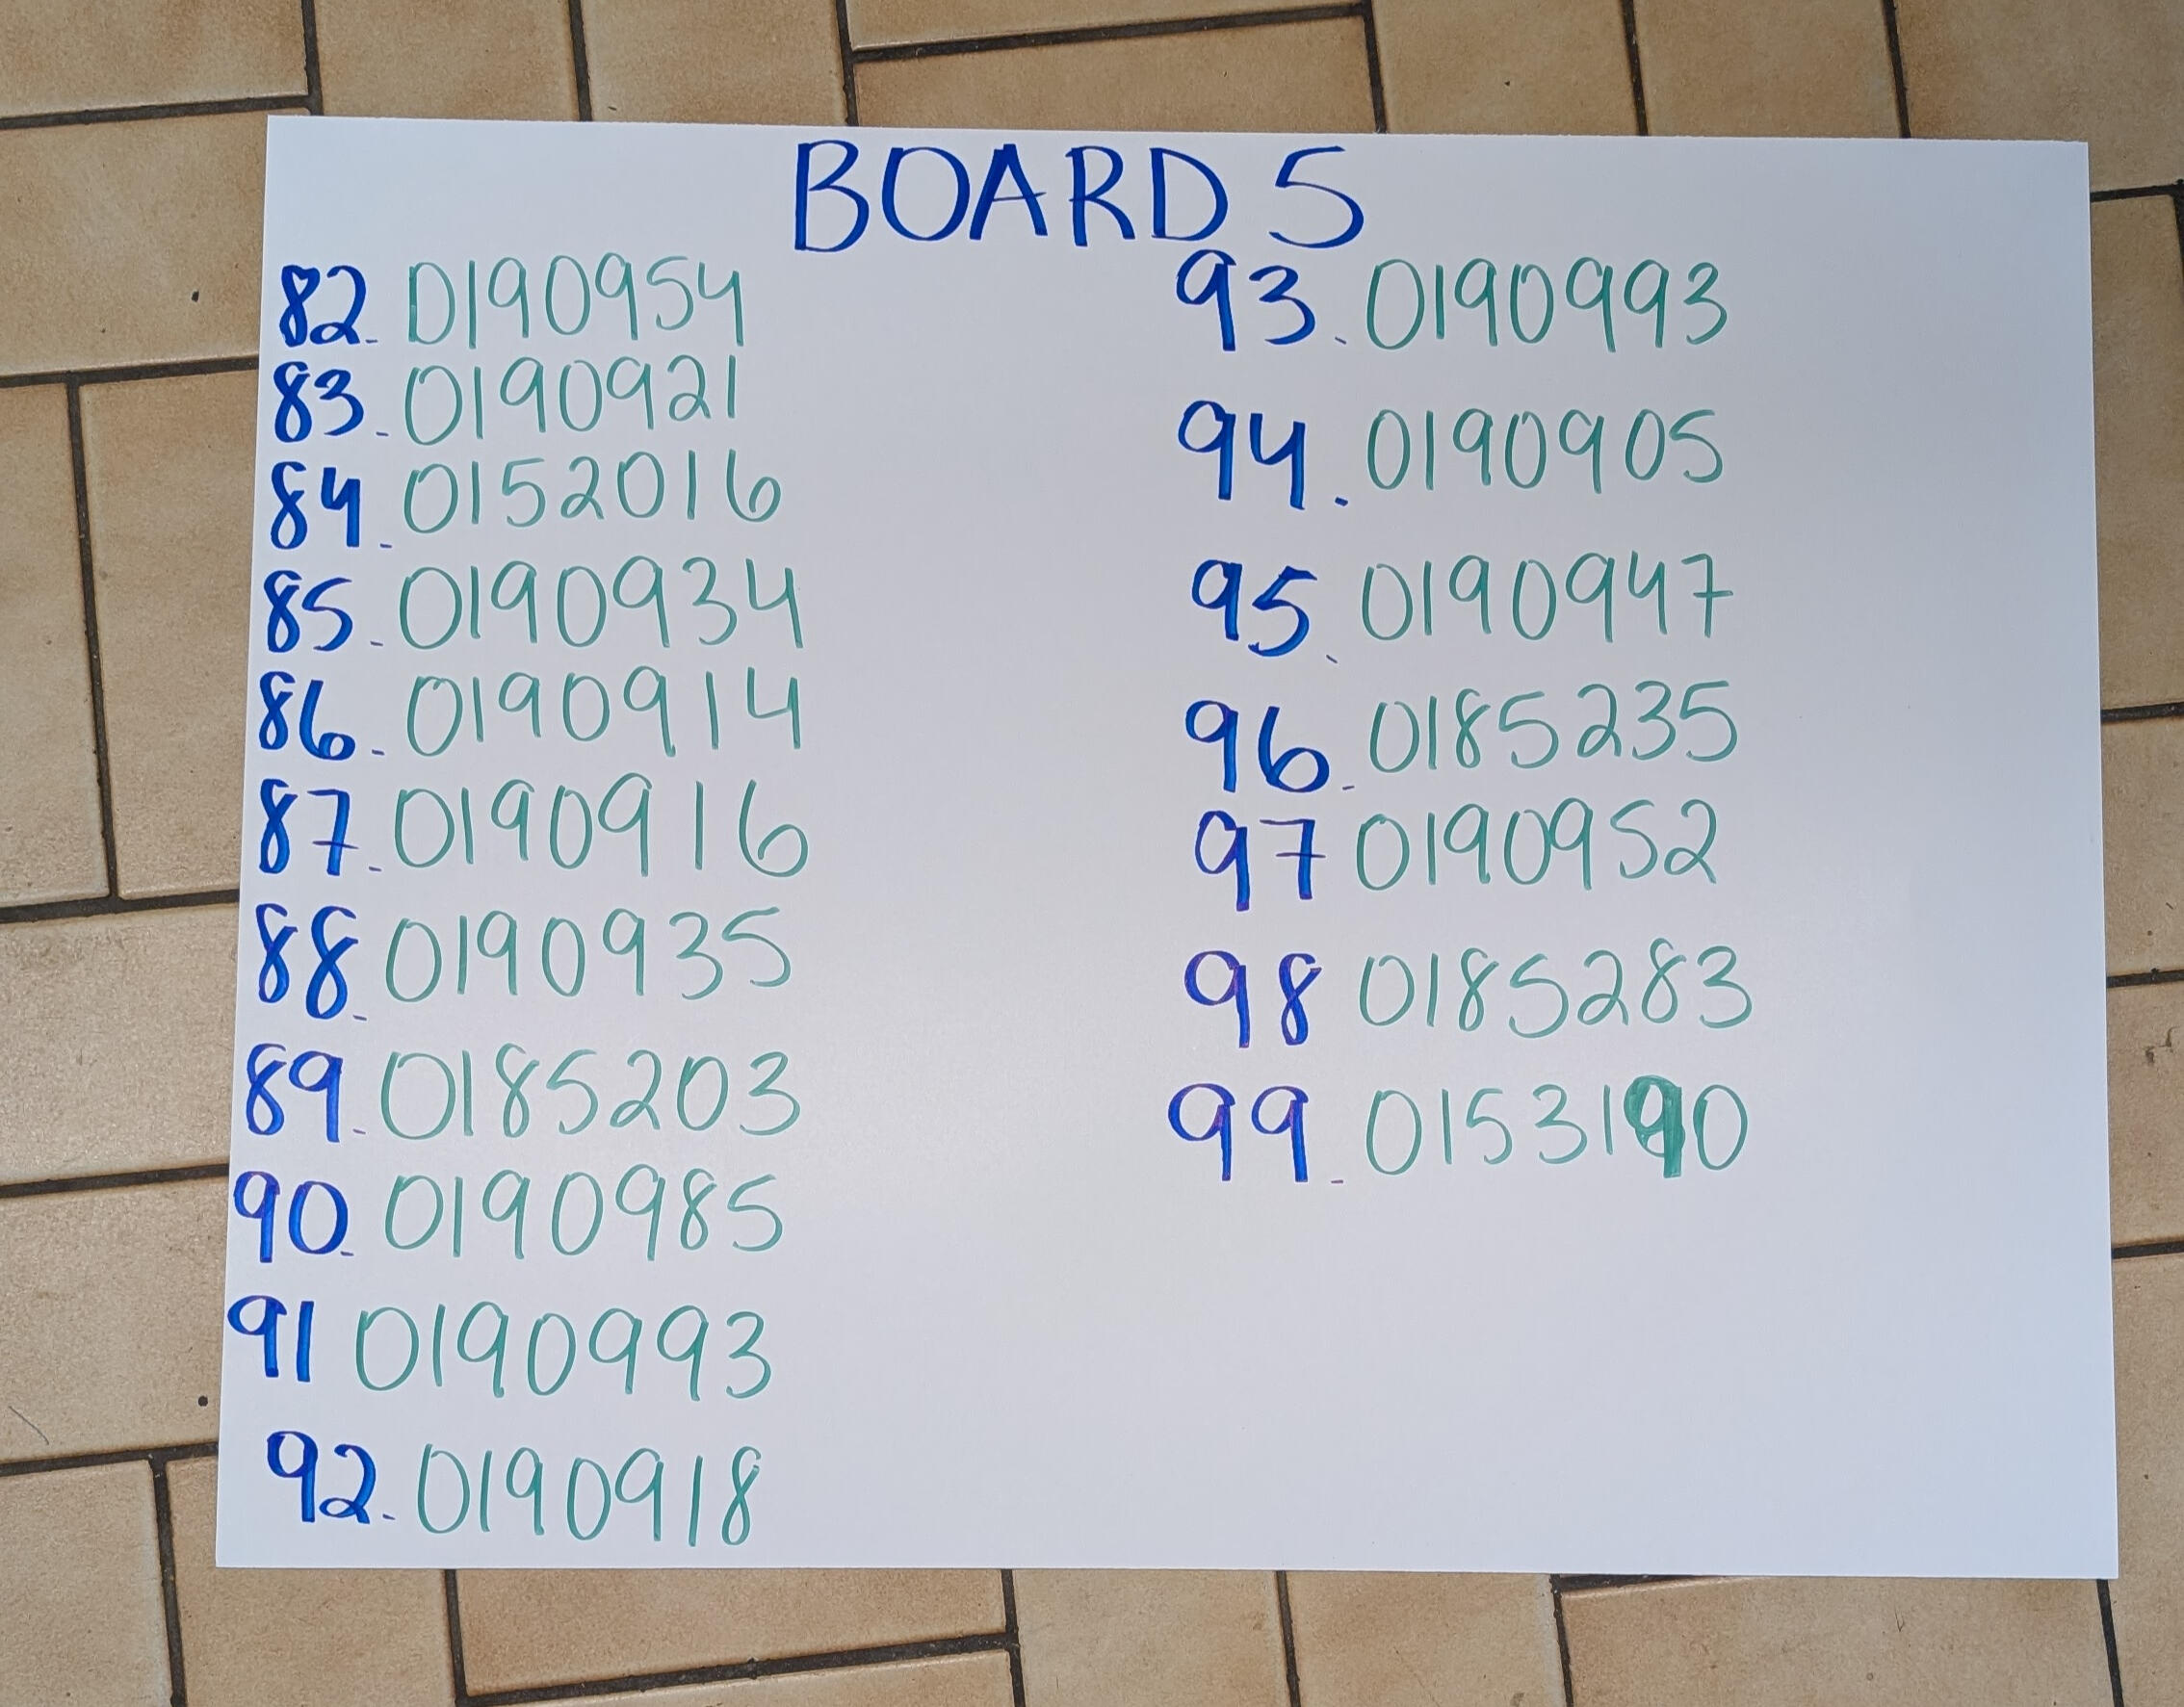 BOARD 5
82. 0190954
83. 0190921
84. 0152016
85. 0190934
86. 0190914
87. 0190916
88. 0190935
89. 0185203
90. 0190985
91 0190993
92. 0190918
93. 0190993
94. 0190905
95. 0190947
96. 0185235
97 0190952
98 0185283
99. 0153190